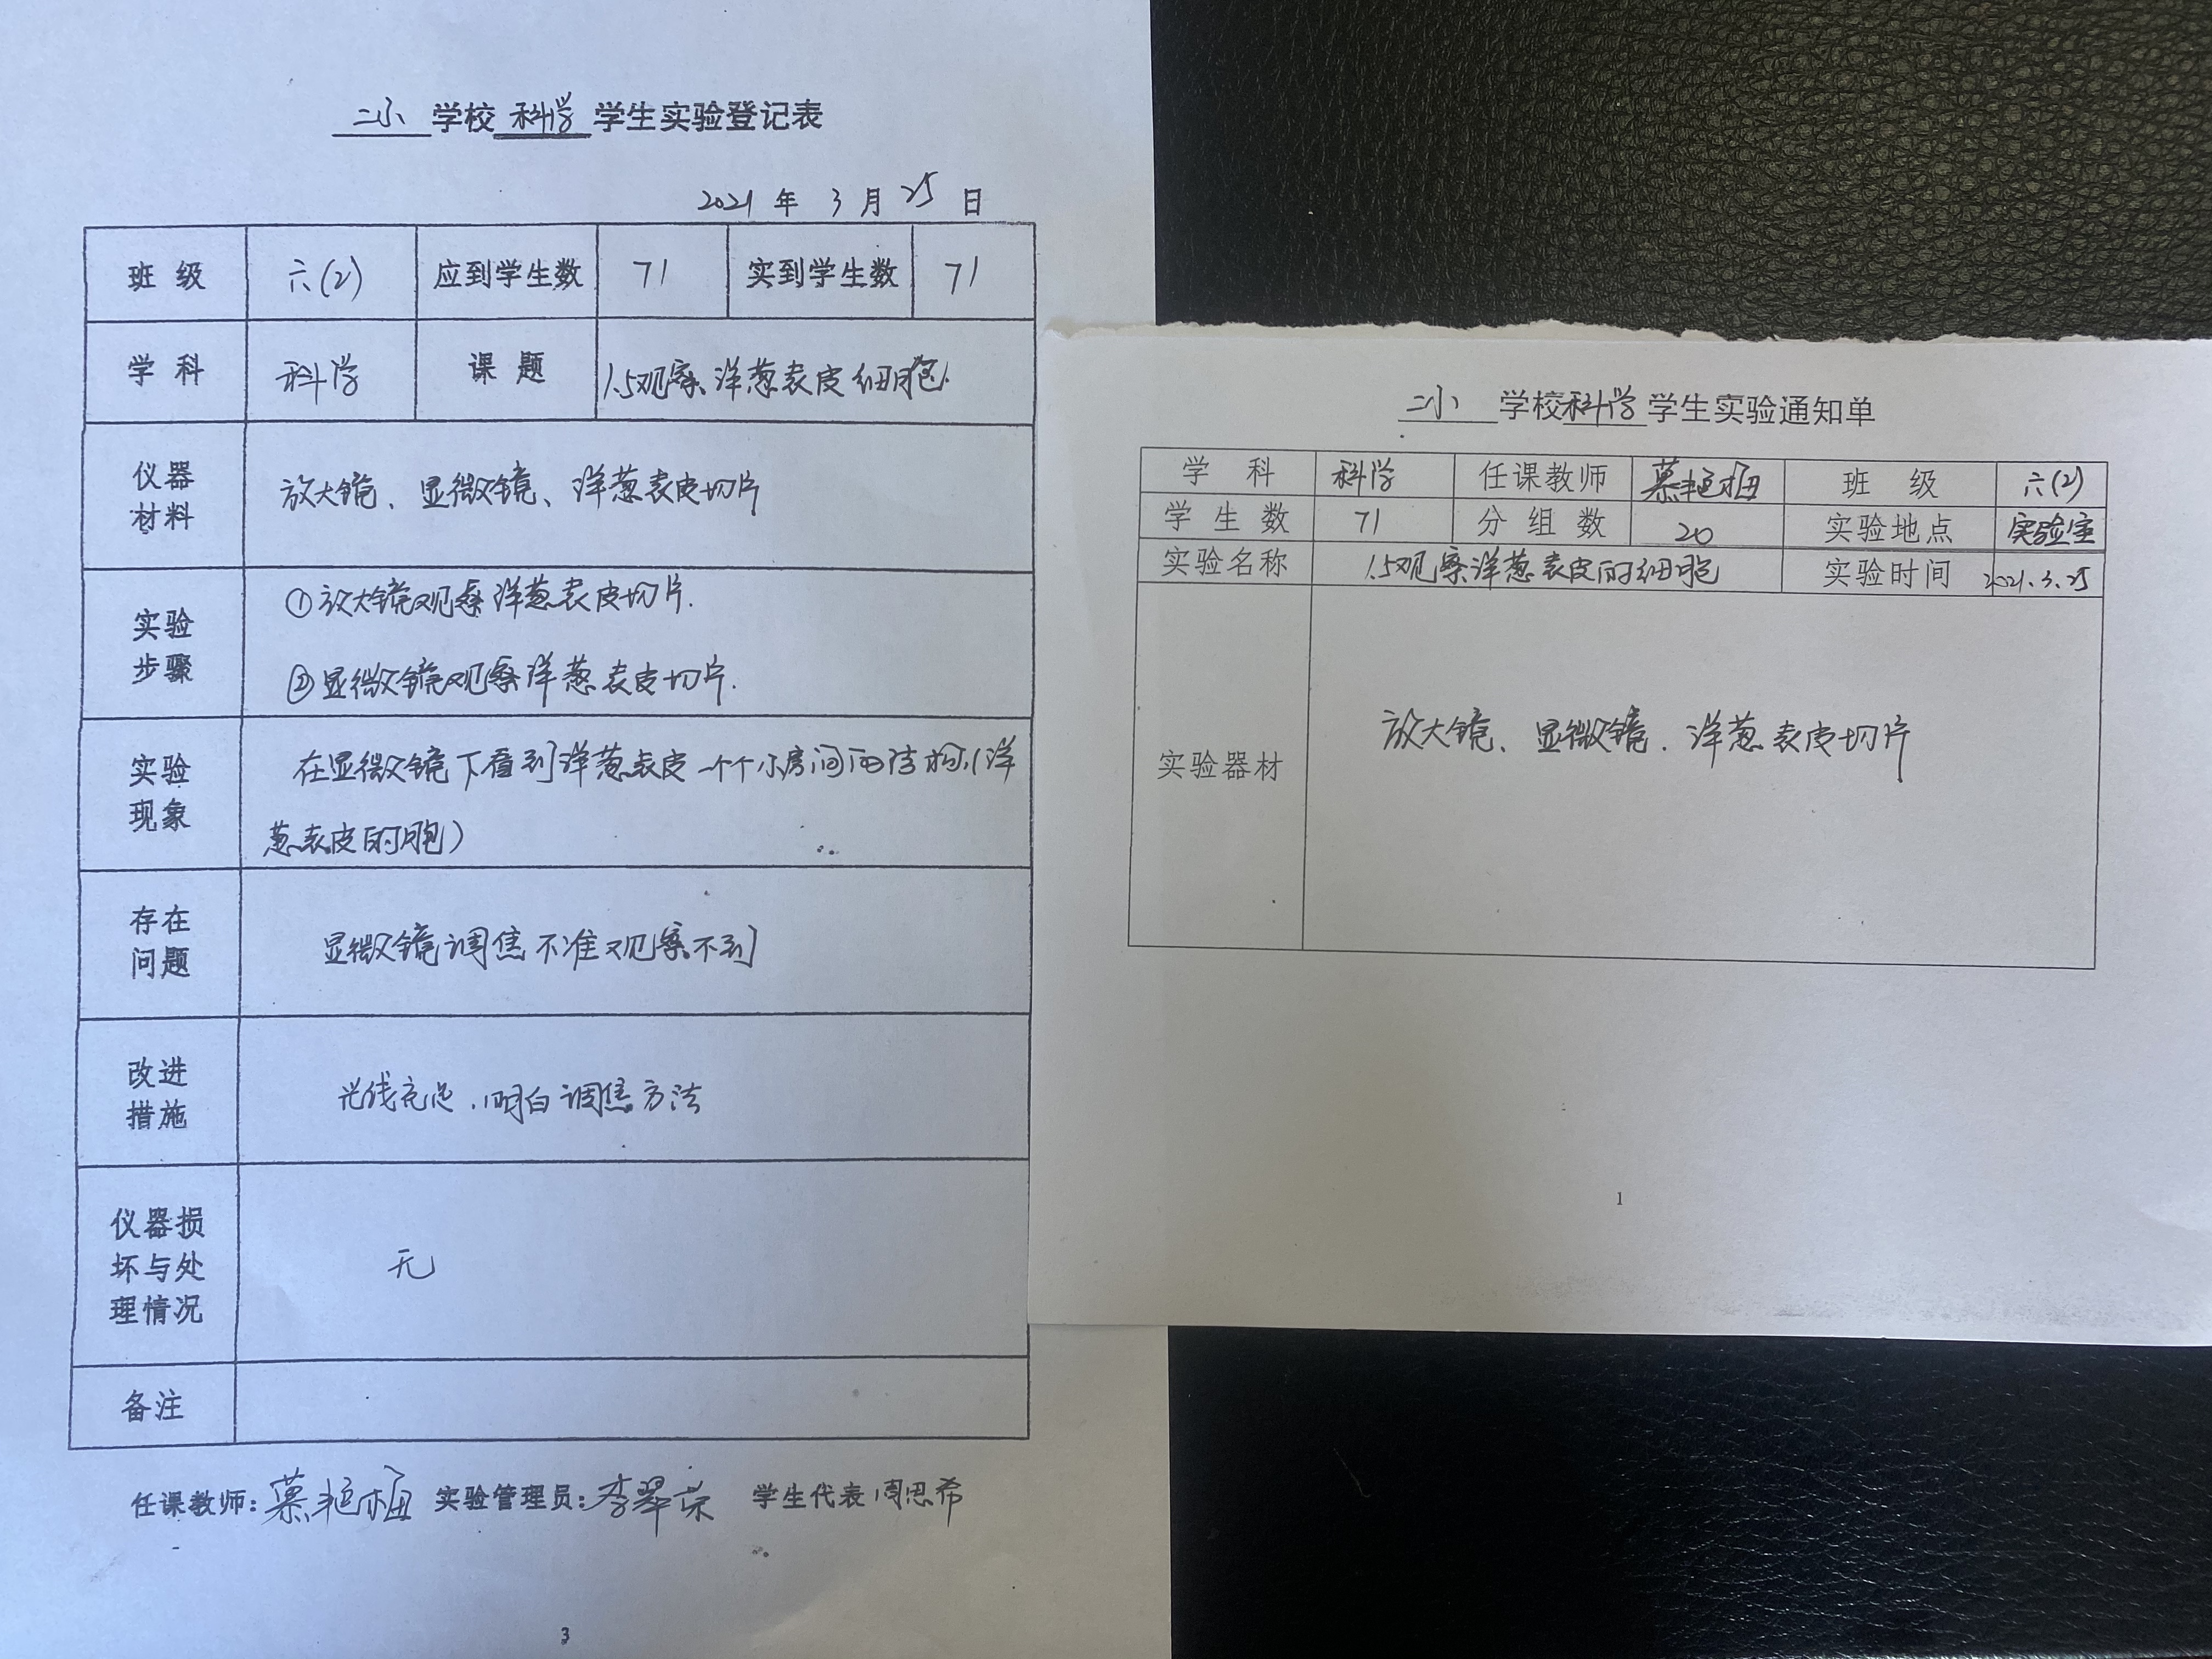 二小 学校 科学 学生实验登记表
2021 年 3 月 25 日
班 级 六(2) 应到学生数 71 实到学生数 71
学 科 科学 课 题 1.5观察洋葱表皮细胞
仪器
材料
放大镜、显微镜、洋葱表皮切片
实验
步骤
①放大镜观察洋葱表皮切片.
②显微镜观察洋葱表皮切片.
实验
现象
在显微镜下看到洋葱表皮一个个小房间 结构(洋
葱表皮的胞)
存在
问题
显微镜调焦不准观察不到
改进
措施
光线充足,明白调焦方法
仪器损
坏与处
理情况
无
备注
任课教师:慕艳梅 实验管理员:李翠荣 学生代表 周思希
3
二小 学校科学 学生实验通知单
学 科 科学 任课教师 慕艳梅 班 级 六(2)
学 生 数 71 分 组 数 20 实验地点 实验室
实验名称 1.5观察洋葱表皮的细胞 实验时间 2021.3.25
实验器材 放大镜、显微镜.洋葱表皮切片
1